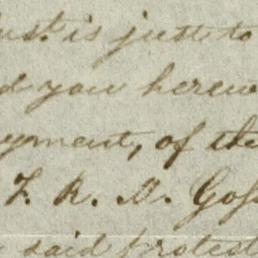 just is just to
d you herew
yment, of the
F. R. M. Gof
said protest